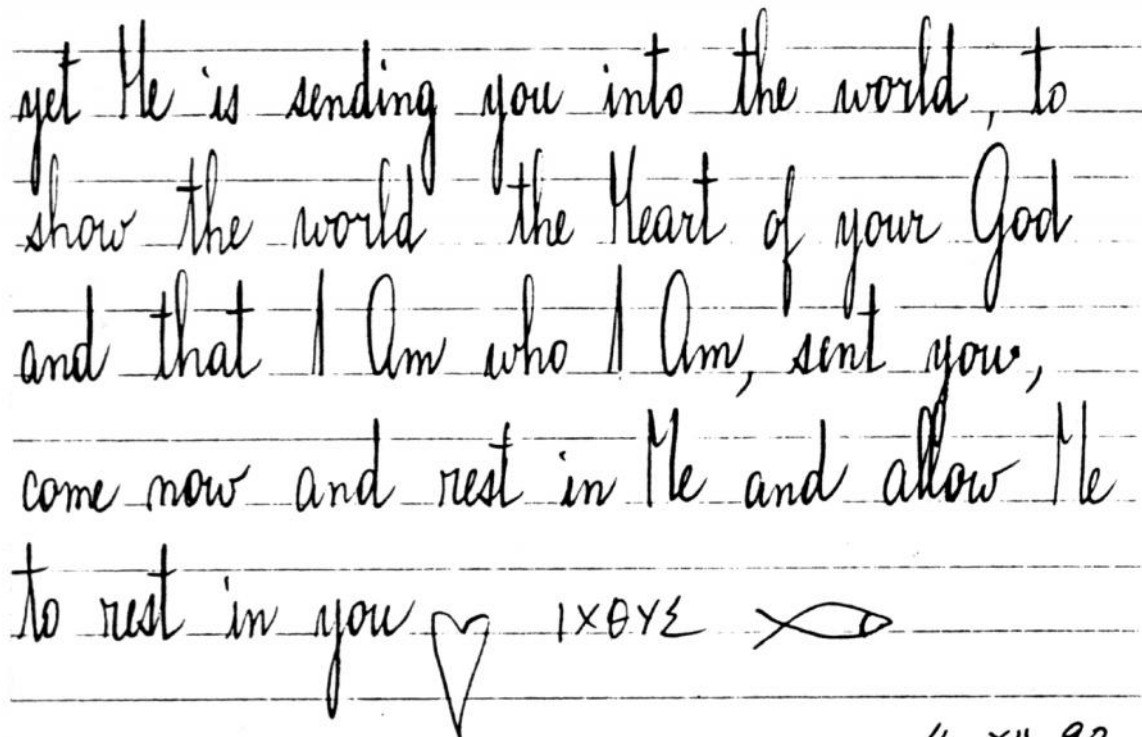 yet He is sending you into the world, to
show the world the Heart of your God
and that I Am who I Am, sent you,
come now and rest in Me and allow Me
to rest in you ΙΧΘΥΣ